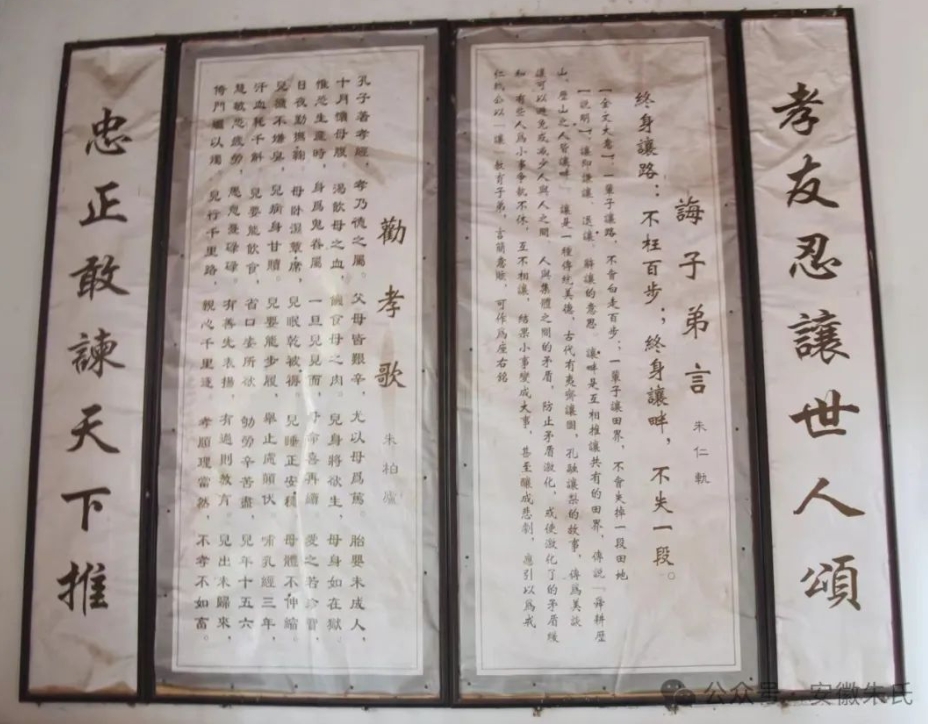 孝友忍讓世人頌
誨子弟言 朱仁軌
終身讓路：不枉百步；終身讓畔，不失一段。
【全文大意】，一輩子讓路，不會白走百步；一輩子讓田界，不會失掉一段田地
【說明】，讓即謙讓、退讓、辭讓的意思。讓畔是互相推讓共有的田界，傳說「舜耕歷
山，歷山之人皆讓畔」讓是一種傳統美德，古代有夷齊讓國，孔融讓梨的故事，傳爲美談
讓可以避免或減少人與人之間、人與集體之間的矛盾，防止矛盾激化，或使激化了的矛盾緩
和，有些人爲小事爭執不休，互不相讓，結果小事變成大事，甚至釀成悲劇，應引以爲戒
仁軌公以「讓」教育子弟，言簡意賅，可作爲座右銘
勸孝歌 朱柏廬
孔子著孝經，孝乃德之屬。父母皆艱辛，尤以母爲篤，胎嬰未成人，
十月懷母腹。渴飲母之血，饑食母之肉。兒身將欲生，母身如在獄。
惟恐生產時，身爲鬼眷屬。一旦兒見面，母命喜再續。愛之若珍寶，
日夜勤撫鞠。母臥濕簟席，兒眠乾被褥。兒睡正安穩，母體不伸縮。
兒穢不嫌臭，兒病身甘贖。兒要能步履，舉止慮顛伏。哺乳經三年，
汗血耗千斛。兒要能飲食，省口姿所欲。劬勞辛苦盡，兒年十五六
慧敏恐疲勞，愚怠憂碌碌。有善先表揚，有過則教育。兒出未歸來，
倚門繼以燭。兒行千里路，親心千里逐。孝順理當然，不孝不如富。
忠正敢諫天下推
公众号·安徽朱氏